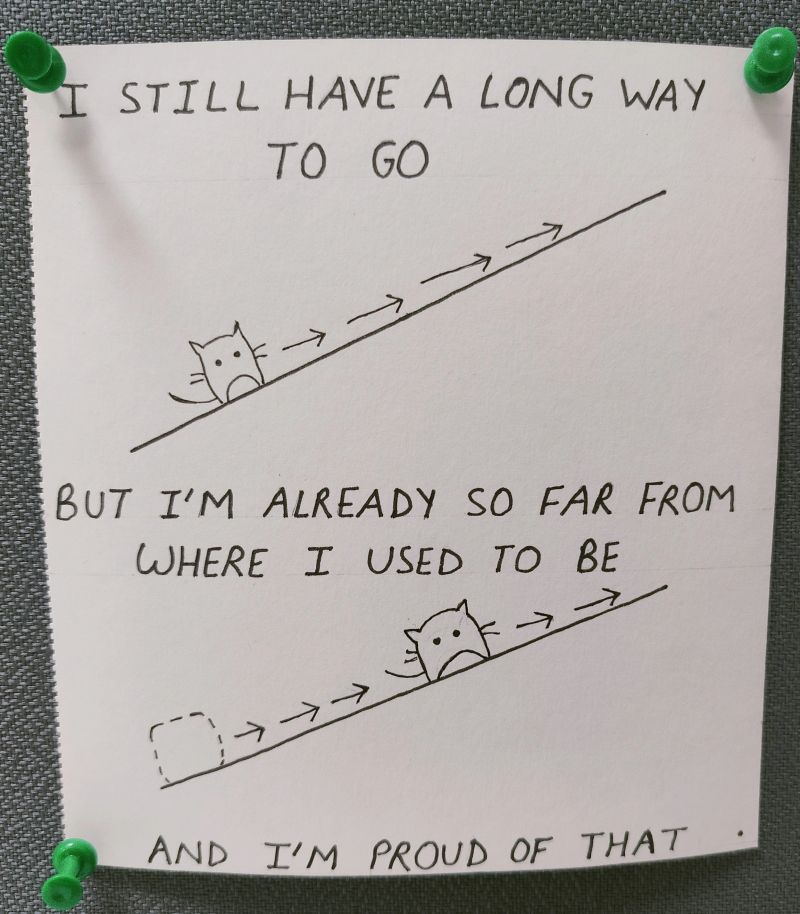 I STILL HAVE A LONG WAY
TO GO
BUT I'M ALREADY SO FAR FROM
WHERE I USED TO BE
AND I'M PROUD OF THAT .